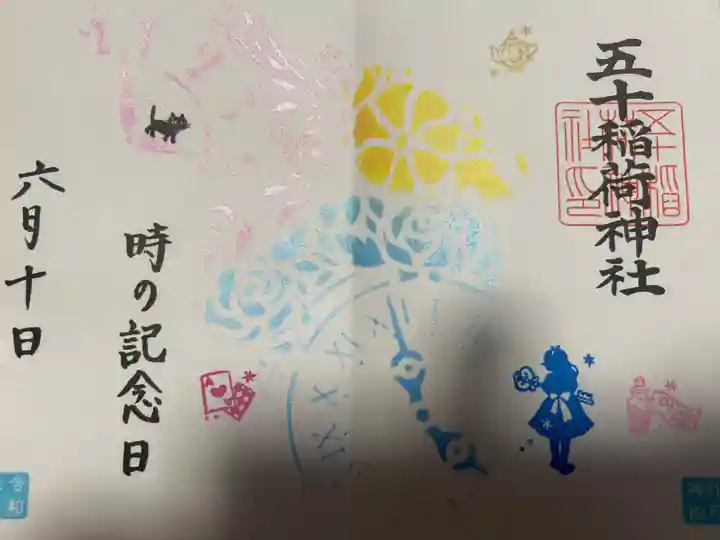 五十稲荷神社
時の記念日
六月十日
令和
A
X
IX